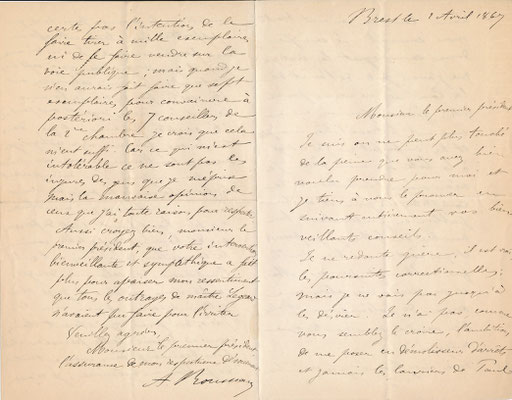 Brest le 2 Avril 1867
Monsieur le premier président
Je suis on ne peut plus touché
de la peine que vous avez bien
voulu prendre pour moi et
je tiens à vous le prouver en
suivant entièrement vos bien
veillants conseils.
Je ne redoute guère, il est vrai
les poursuites correctionnelles;
mais je ne vais pas jusqu'à
les Je n'ai pas, comme
vous semblez le croire, l'ambition
de me poser en démolisseur d'arrêts
et jamais les lauriers de
certe pas l'intention de la
faire tirer à mille exemplaires
ni de la faire vendre sur la
voie publique; mais quand je
n'en aurais fait faire que sept
exemplaires pour convaincre à
postériori les 7 conseillers de
la 2me chambre je crois que cela
m'eut suffi. Car ce qui m'est
intolérable ce ne sont pas les
injures des gens que je méprise
mais la mauvaise opinion de
ceux que j'ai toute raison pour respecter
Aussi croyez bien, monsieur le
premier président, que votre intervention
bienveillante et sympathique a fait
plus pour apaiser mon ressentiment
que tous les outrages de maître
n'avaient pu faire pour l'irriter
Veuillez agréer
Monsieur le premier président
l'assurance de mes respectueux
A Rousseau